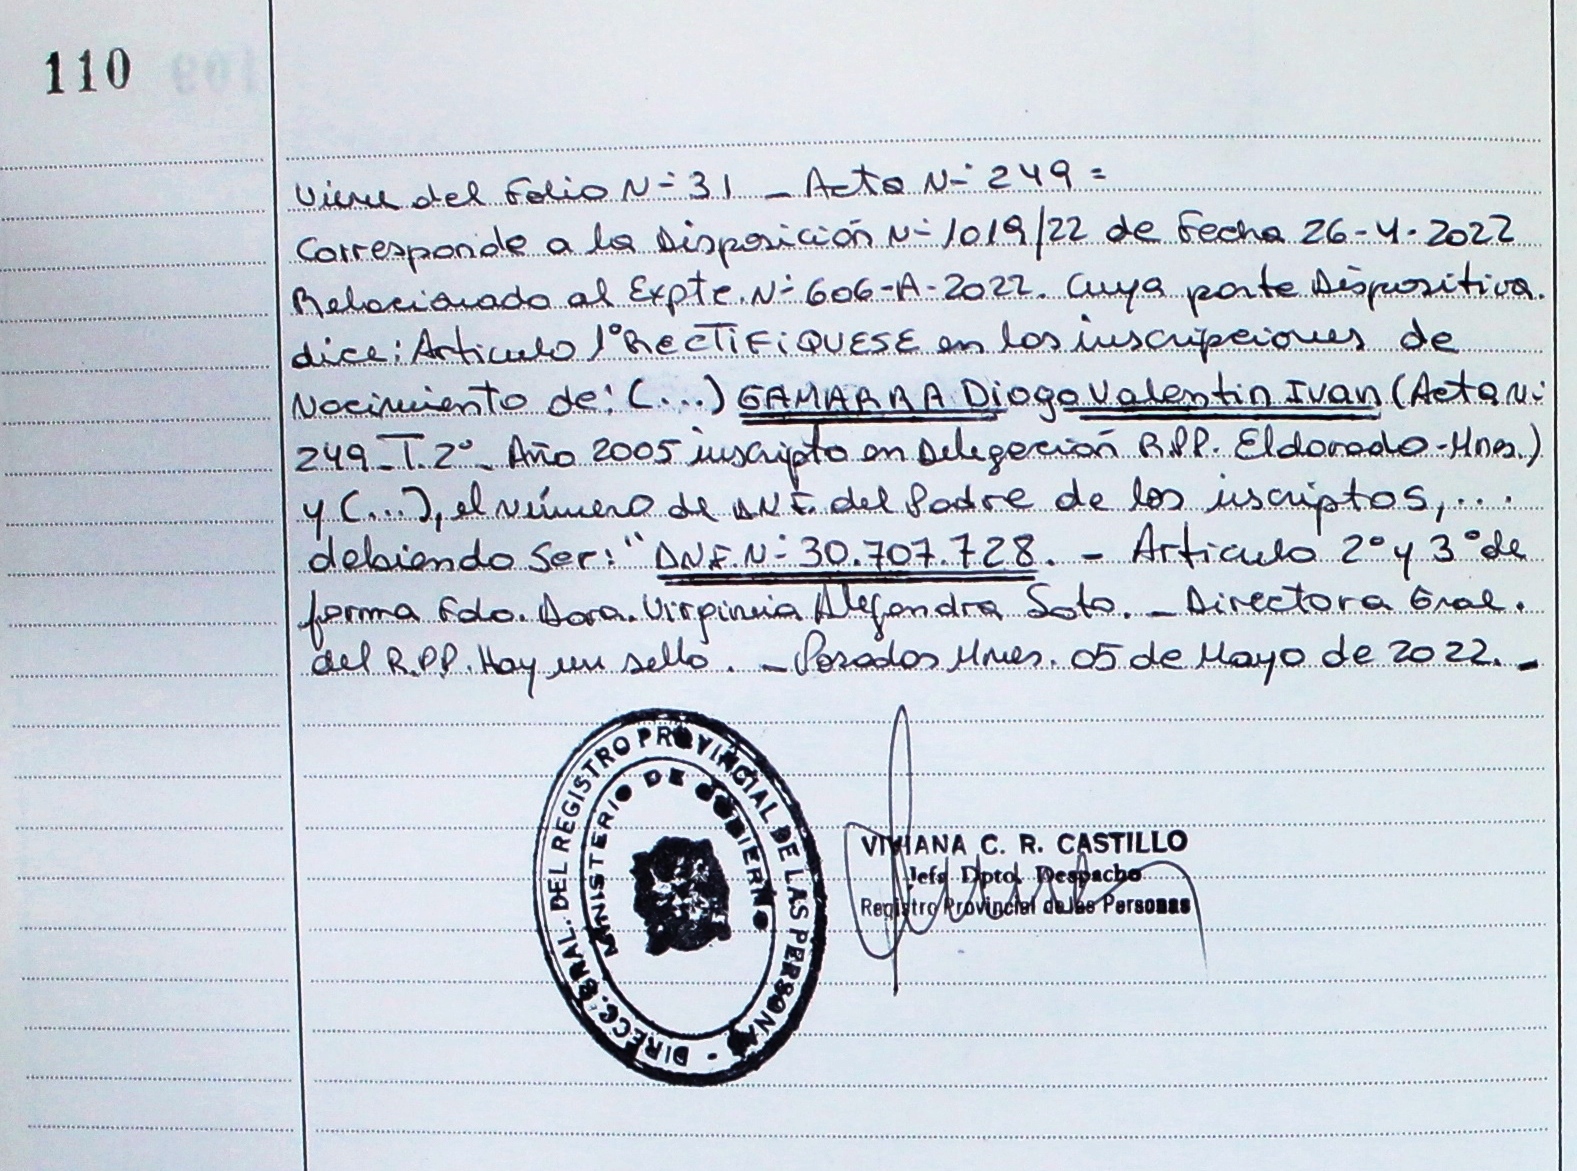 110
Viene del Folio N- 31 _ Acta N- 249 =
Corresponde a la Disposición N- 1019/22 de Fecha 26-4-2022
Relacionado al Expte. N- 606-A-2022. Cuya parte Dispositiva.
dice: Articulo 1° RECTIFIQUESE en las inscripciones de
Nacimiento de: (...) GAMARRA Diogo Valentin Ivan (Acta N-
249_T.2°_ Año 2005 inscripto en Delegación R.P.P. Eldorado-Mnes.)
y (...), el número de D.N.I. del Padre de los inscriptos,...
debiendo Ser: "DNI. N- 30.707.728. - Articulo 2° y 3° de
forma Fdo. Dora. Virginia Alejandra Soto. _ Directora Gral.
del R.P.P. Hay un sello. _ Posadas Mnes. 05 de Mayo de 2022._
DIRECC. GRAL. DEL REGISTRO PROVINCIAL DE LAS PERSONAS -
MINISTERIO DE GOBIERNO
VIVIANA C. R. CASTILLO
Jefa Dpto. Despacho
Registro Provincial de las Personas